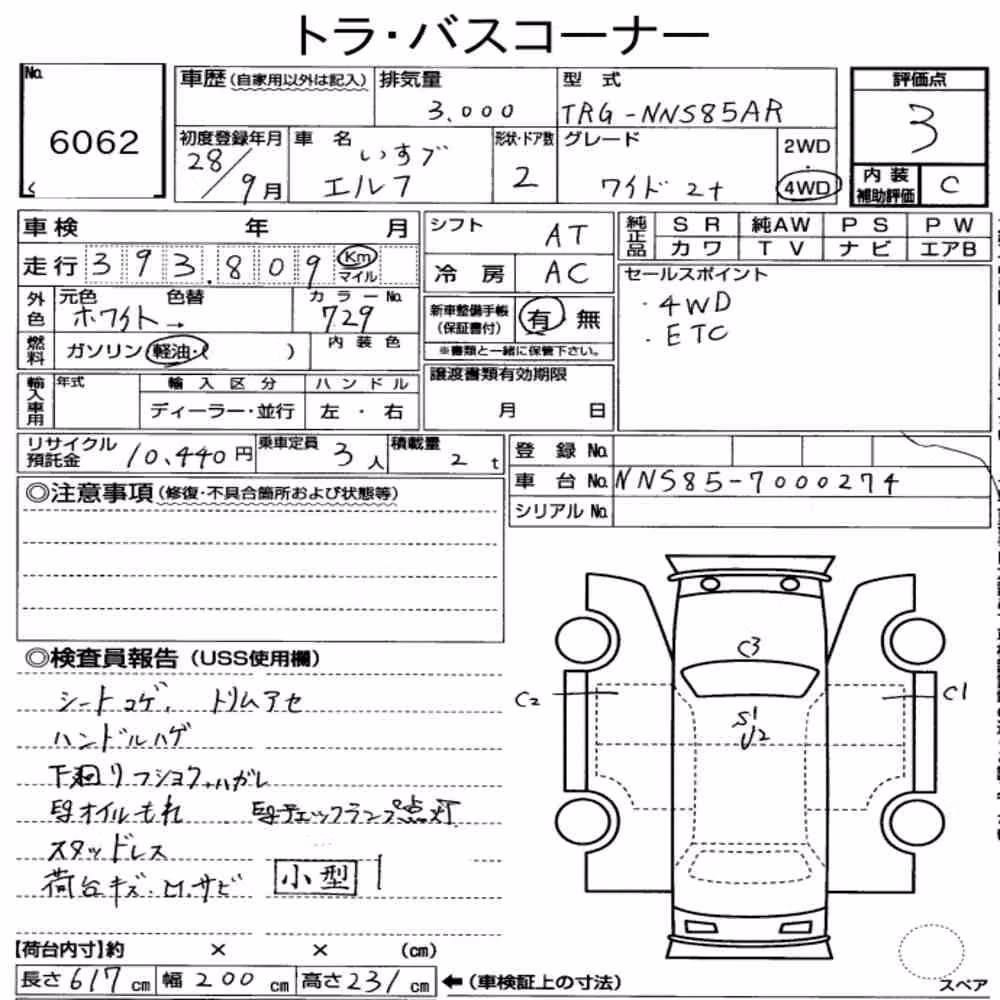 トラ・バスコーナー
No. 6062
車歴(自家用以外は記入) 排気量 3.000 型式 TRG-NNS85AR
初度登録年月 28/9月 車名 いすゞ エルフ 形状・ドア数 2 グレード ワイド 2t 2WD・4WD
評価点 3
内装補助評価 C
車検 年 月
走行 393.809 Km マイル
外色 元色 ホワイト→ 色替 カラーNo. 729
燃料 ガソリン・軽油・( ) 内装色
輸入車用 年式 輸入区分 ディーラー・並行 ハンドル 左・右
シフト AT
冷房 AC
新車整備手帳(保証書付) 有 無
※書類と一緒に保管下さい。
譲渡書類有効期限
月 日
純正品 SR 純AW PS PW
カワ TV ナビ エアB
セールスポイント
・4WD
・ETC
リサイクル預託金 10,440円 乗車定員 3人 積載量 2t
登録No.
車台No. NNS85-7000274
シリアルNo.
◎注意事項(修復・不具合箇所および状態等)
◎検査員報告(USS使用欄)
シートコゲ、トリムアセ
ハンドルハゲ
下廻りフショク、ハガレ
E/gオイルもれ E/gチェックランプ点灯
スタッドレス
荷台キズ・M.サビ 小型 1
C3
C2
C1
S1
U2
【荷台内寸】約 × × (cm)
長さ617cm 幅200cm 高さ231cm ←(車検証上の寸法)
スペア